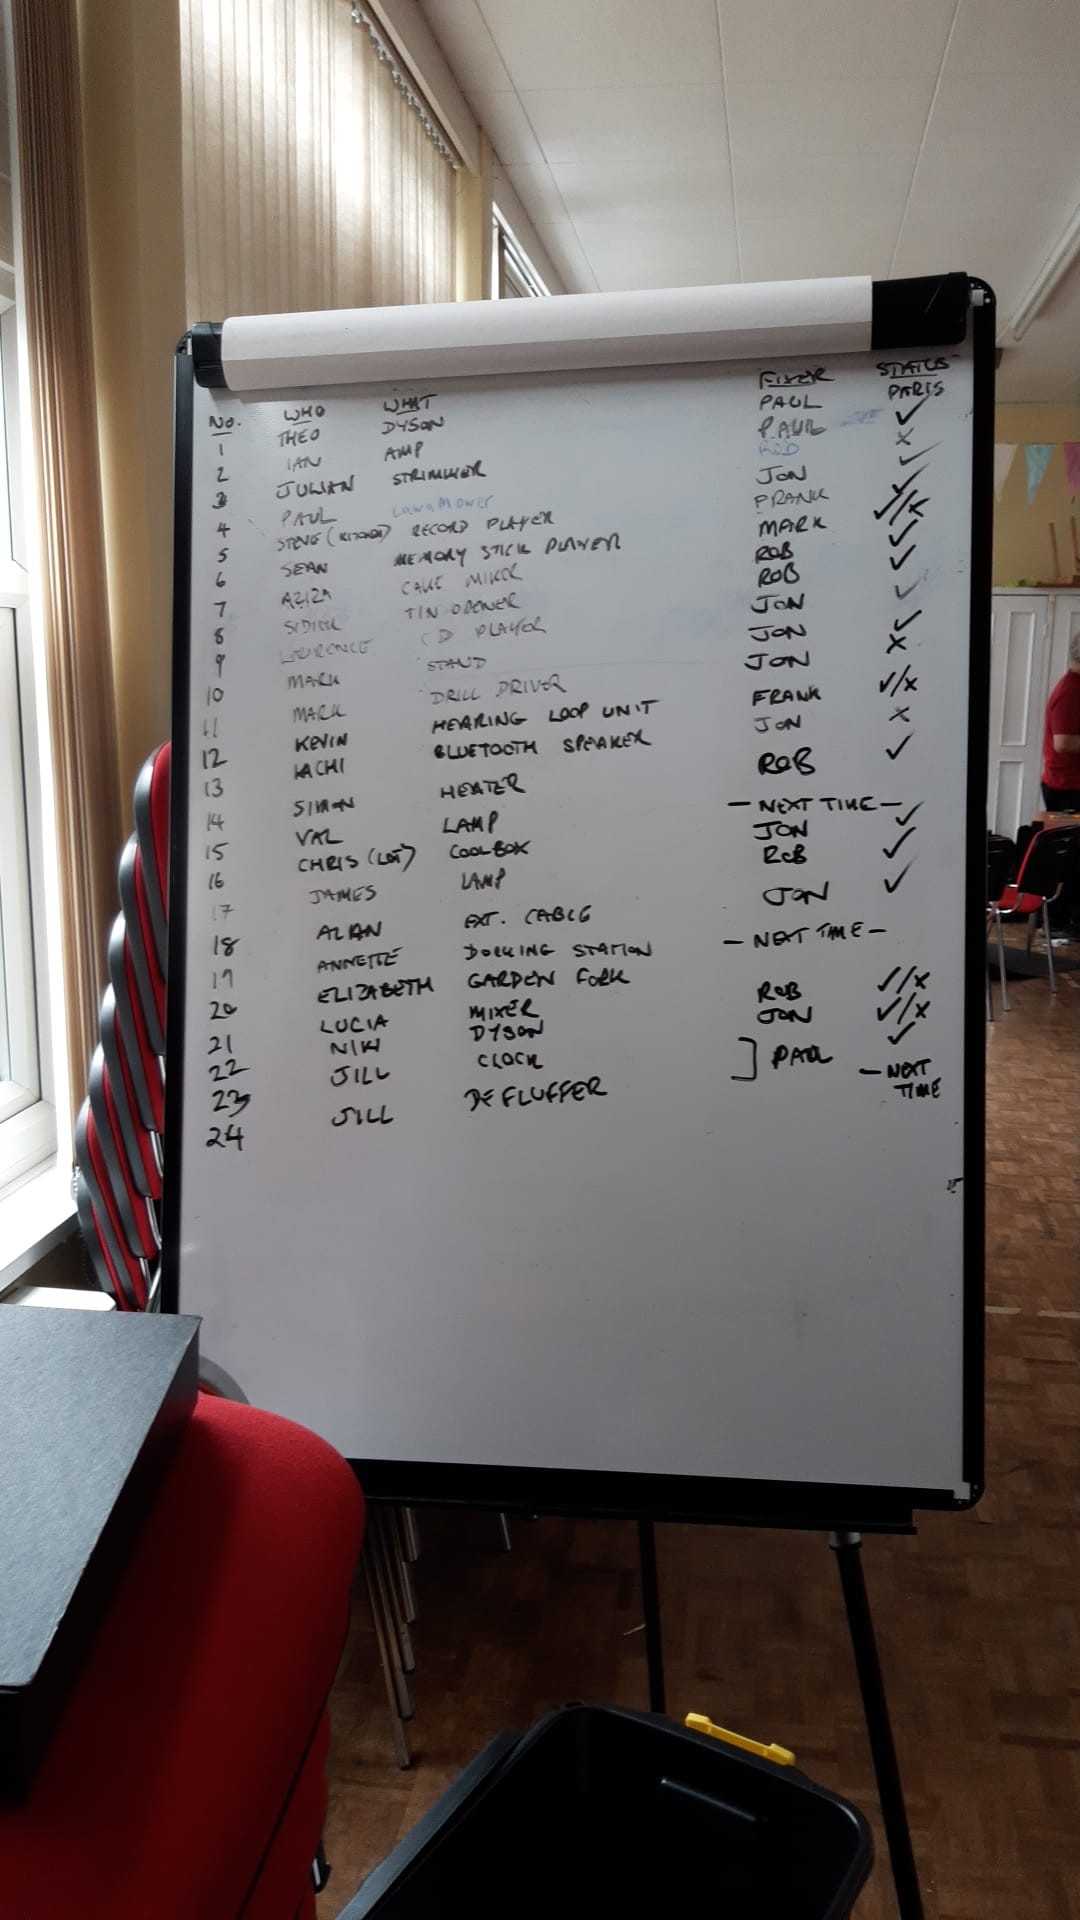 No. WHO WHAT FIXER STATUS
1 THEO DYSON PAUL PARTS
2 IAN AMP PAUL ✓
3 JULIAN STRIMMER ROB x
4 PAUL LawnMower JON ✓
5 STEVE (KITCHEN) RECORD PLAYER FRANK ✓
6 SEAN MEMORY STICK PLAYER MARK ✓/x
7 AZIZA CAKE MIXER ROB ✓
8 SIDICK TIN OPENER ROB ✓
9 LAWRENCE CD PLAYER JON ✓
10 MARK STAND JON ✓
11 MARK DRILL DRIVER JON x
12 KEVIN HEARING LOOP UNIT FRANK ✓/x
13 KACHI BLUETOOTH SPEAKER JON x
14 SIMON HEATER ROB ✓
15 VAL LAMP - NEXT TIME -
16 CHRIS (LOT) COOLBOX JON ✓
17 JAMES LAMP ROB ✓
18 ALAN EXT. CABLE JON ✓
19 ANNETTE DOCKING STATION - NEXT TIME -
20 ELIZABETH GARDEN FORK
21 LUCIA MIXER ROB ✓/x
22 NIKI DYSON JON ✓/x
23 JILL CLOCK ] PAUL ✓
24 JILL DEFLUFFER - NEXT TIME